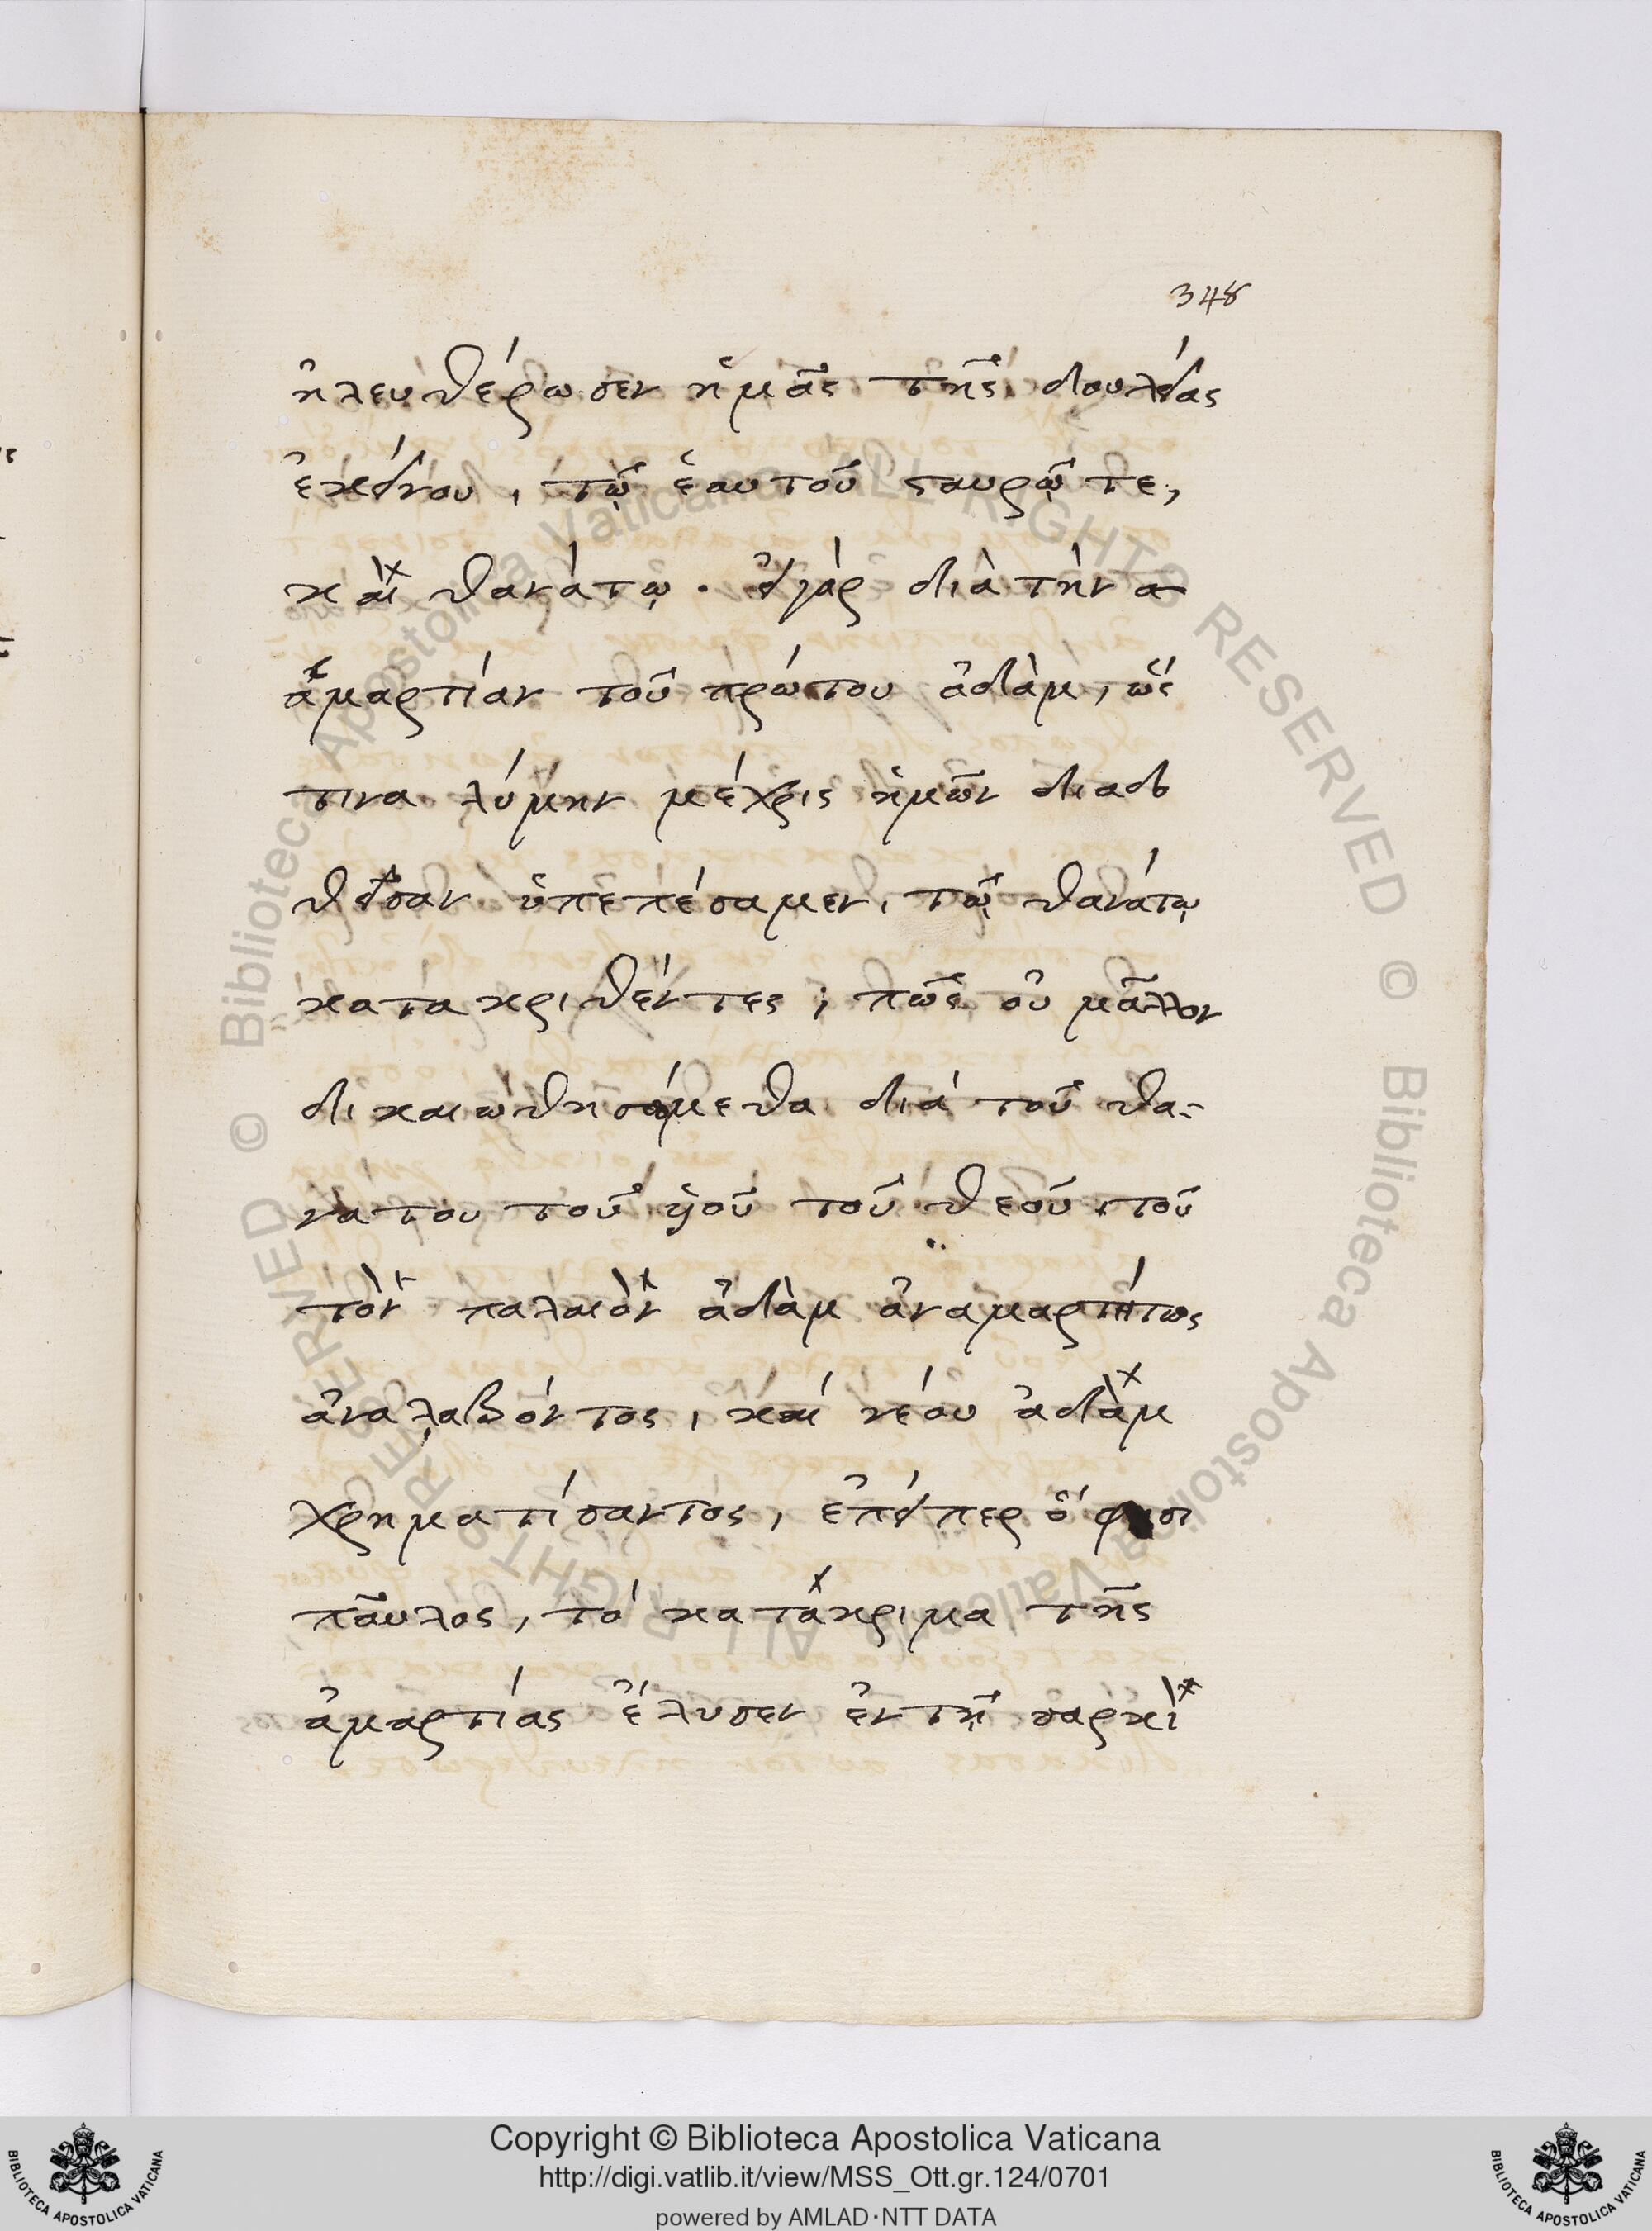 348
ἠλευθέρωσεν ἡμᾶς τῆς δουλείας
ἐκείνου, τῷ ἑαυτοῦ σταυρῷ τε,
καὶ θανάτῳ. εἰ γὰρ διὰ τὴν ἁ
ἁμαρτίαν τοῦ πρώτου ἀδὰμ, ὥς
τινα λύμην μέχρις ἡμῶν διαδο
θεῖσαν ὑπεπέσαμεν, τῷ θανάτῳ
κατακριθέντες; πῶς οὐ μᾶλλον
δικαιωθησόμεθα διά τοῦ θα-
νάτου τοῦ ὑιοῦ τοῦ θεοῦ, τοῦ
τὸν παλαιὸν ἀδὰμ ἀναμαρτήτως
ἀναλαβόντος, καί νέου ἀδὰμ
χρηματίσαντος, ἐπείπερ ὅ φησι
παῦλος, τό κατάκριμα τῆς
ἁμαρτίας ἔλυσεν ἐν τῇ σαρκὶ
© Biblioteca Apostolica Vaticana ALL RIGHTS RESERVED © Biblioteca Apostolica Vaticana ALL RIGHTS RESERVED
Copyright © Biblioteca Apostolica Vaticana
http://digi.vatlib.it/view/MSS_Ott.gr.124/0701
powered by AMLAD·NTT DATA
BIBLIOTECA APOSTOLICA VATICANA
BIBLIOTECA APOSTOLICA VATICANA